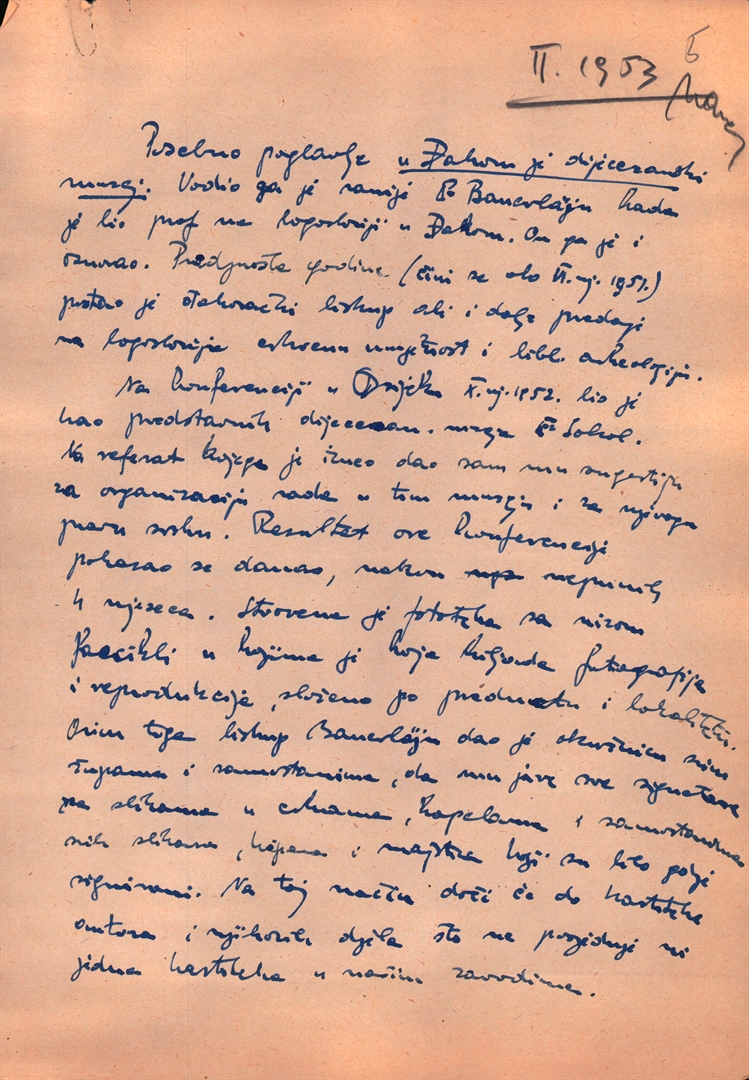 II. 1953
Posebno poglavlje u Đakovu je dijecezanski
muzej. Vodio ga je ranije Bauerlein kada
je bio prof na bogosloviji u Đakovu. On ga je i
osnovao. Predprošle godine (čini se oko VI. mj. 1951.)
postao je đakovački biskup ali i dalje predaje
na bogosloviji crkvenu umjetnost i bibl. arheologiju.
Na konferenciji u Osijeku X. mj. 1952. bio je
kao predstavnik dijecezan. muzeja Sokol.
Na referat kojega je iznео dao sam mu sugestiju
za organizaciju rada u tom muzeju i za njegovu
pravu svrhu. Rezultat ove konferencije
pokazao se danas, nakon nepunih
4 mjeseca. Stvorena je fototeka sa nizom
fascikli u kojima je koja hiljada fotografija
i reprodukcija, složeno po predmetu i lokalitetu.
Osim toga biskup Bauerlein dao je okružnicu svim
župama i samostanima, da mu jave sve signature
na slikama u crkvama, kapelama i samostanima
svih slikara, kipara i majstora koji su bilo gdje
signirani. Na taj način doći će do kartoteke
autora i njihovih djela što ne posjeduje ni
jedna kartoteka u našim zavodima.